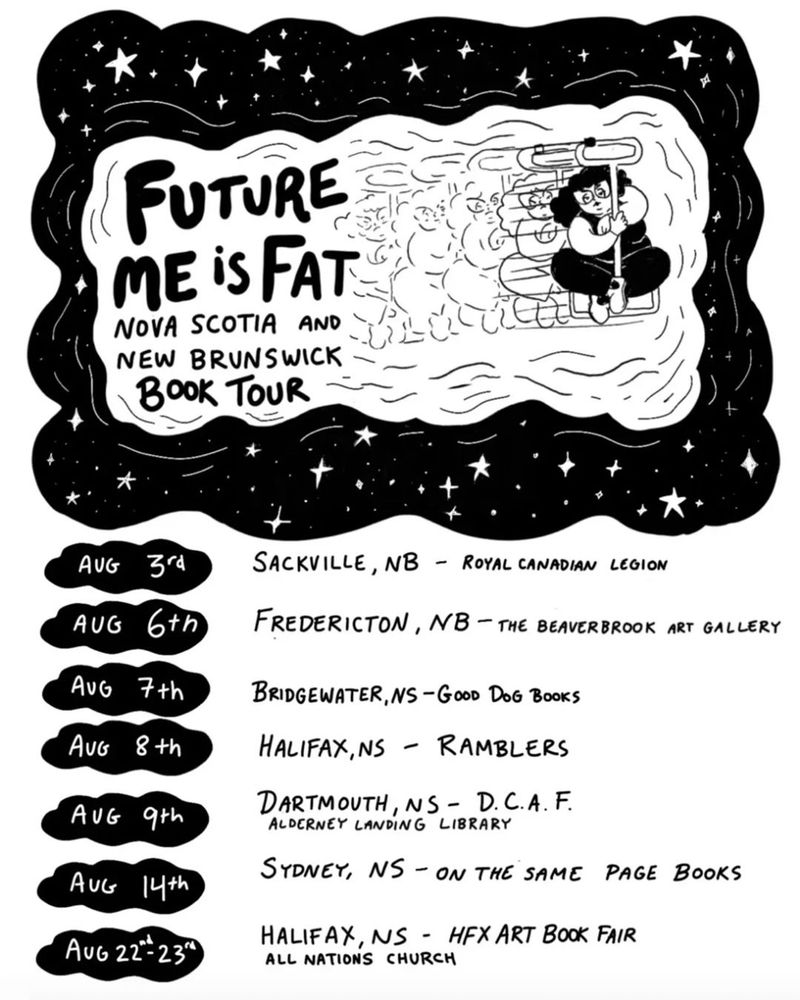 FUTURE
ME iS FAT
NOVA SCOTIA AND
NEW BRUNSWICK
BOOK TOUR
AUG 3rd SACKVILLE, NB - ROYAL CANADIAN LEGION
AUG 6th FREDERICTON, NB - THE BEAVERBROOK ART GALLERY
AUG 7th BRIDGEWATER, NS - GOOD DOG BOOKS
AUG 8th HALIFAX, NS - RAMBLERS
AUG 9th DARTMOUTH, NS - D.C.A.F.
ALDERNEY LANDING LIBRARY
AUG 14th SYDNEY, NS - ON THE SAME PAGE BOOKS
AUG 22nd-23rd HALIFAX, NS - HFX ART BOOK FAIR
ALL NATIONS CHURCH